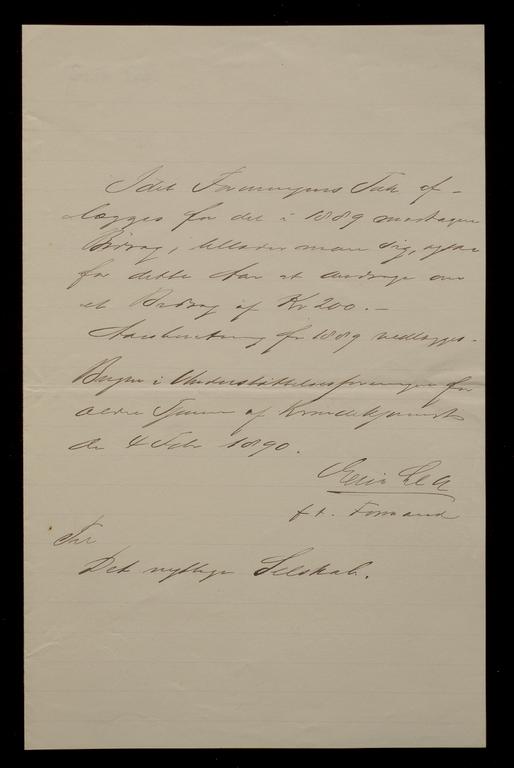 Idet Foreningens Tak af-
lægges for det i 1889 modtagne
Bidrag, tillader man sig, ogsaa
for dette Aar at andrage om
et Bidrag af Kr 200.-
Aarsberetning for 1889 vedlægges.
Bergen i Understøttelsesforeningen for
ældre Tjenere af Kvindekjønnet
den 4 Febr 1890.
Lea
f.t. Formand
Til
Det nyttige Selskab.